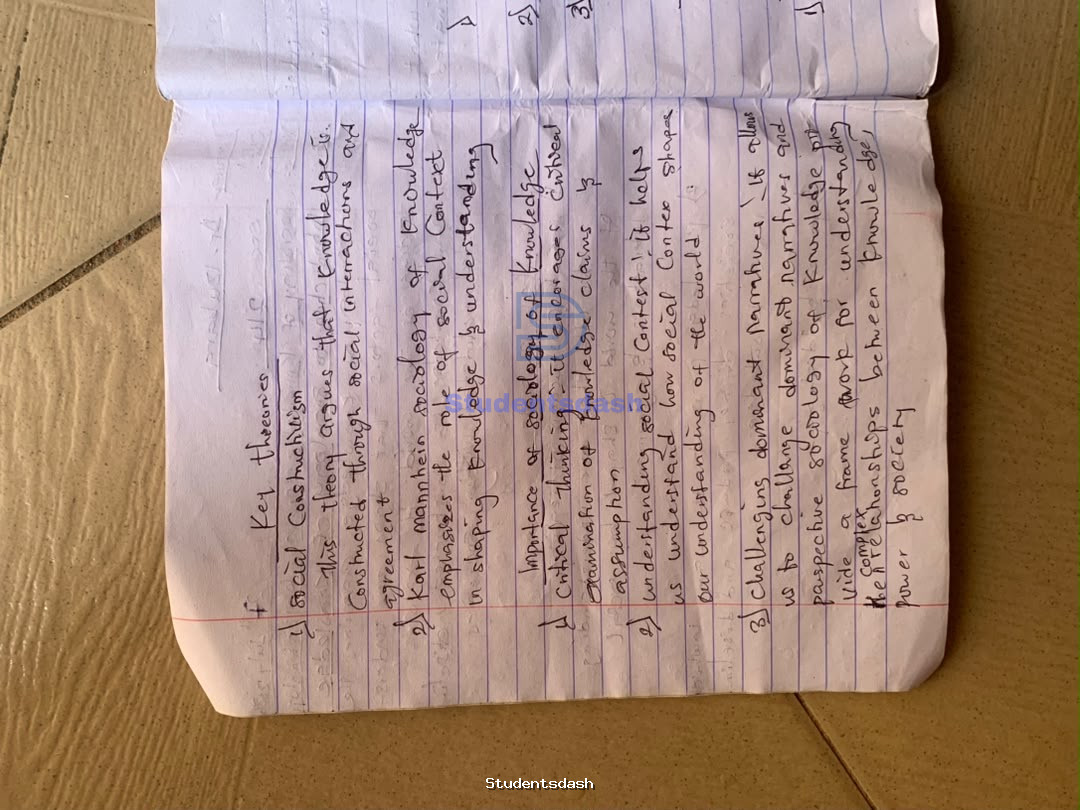 f Key threories
1) social Constructivism
This theory argues that knowledge is
Constructed through social interractions and
agreement
2) Karl mannhein sociology of knowledge
emphasizes the role of social Context
in shaping knowledge & understanding
Importance of sociology of knowledge
1) Critical thinking - it encorages critical
examination of knowledge claims &
assumption
2) understanding social Contest; it helps
us understand how social Contex shapes
our understanding of the world
3) challenging dominant narratives; it allows
us to challange dominant narratives and
parspective sociology of knowledge pro
vide a frame work for understanding
the complex relationships between knowledge,
power & society
1)
2)
3)
1)
Studentsdash
Studentsdash